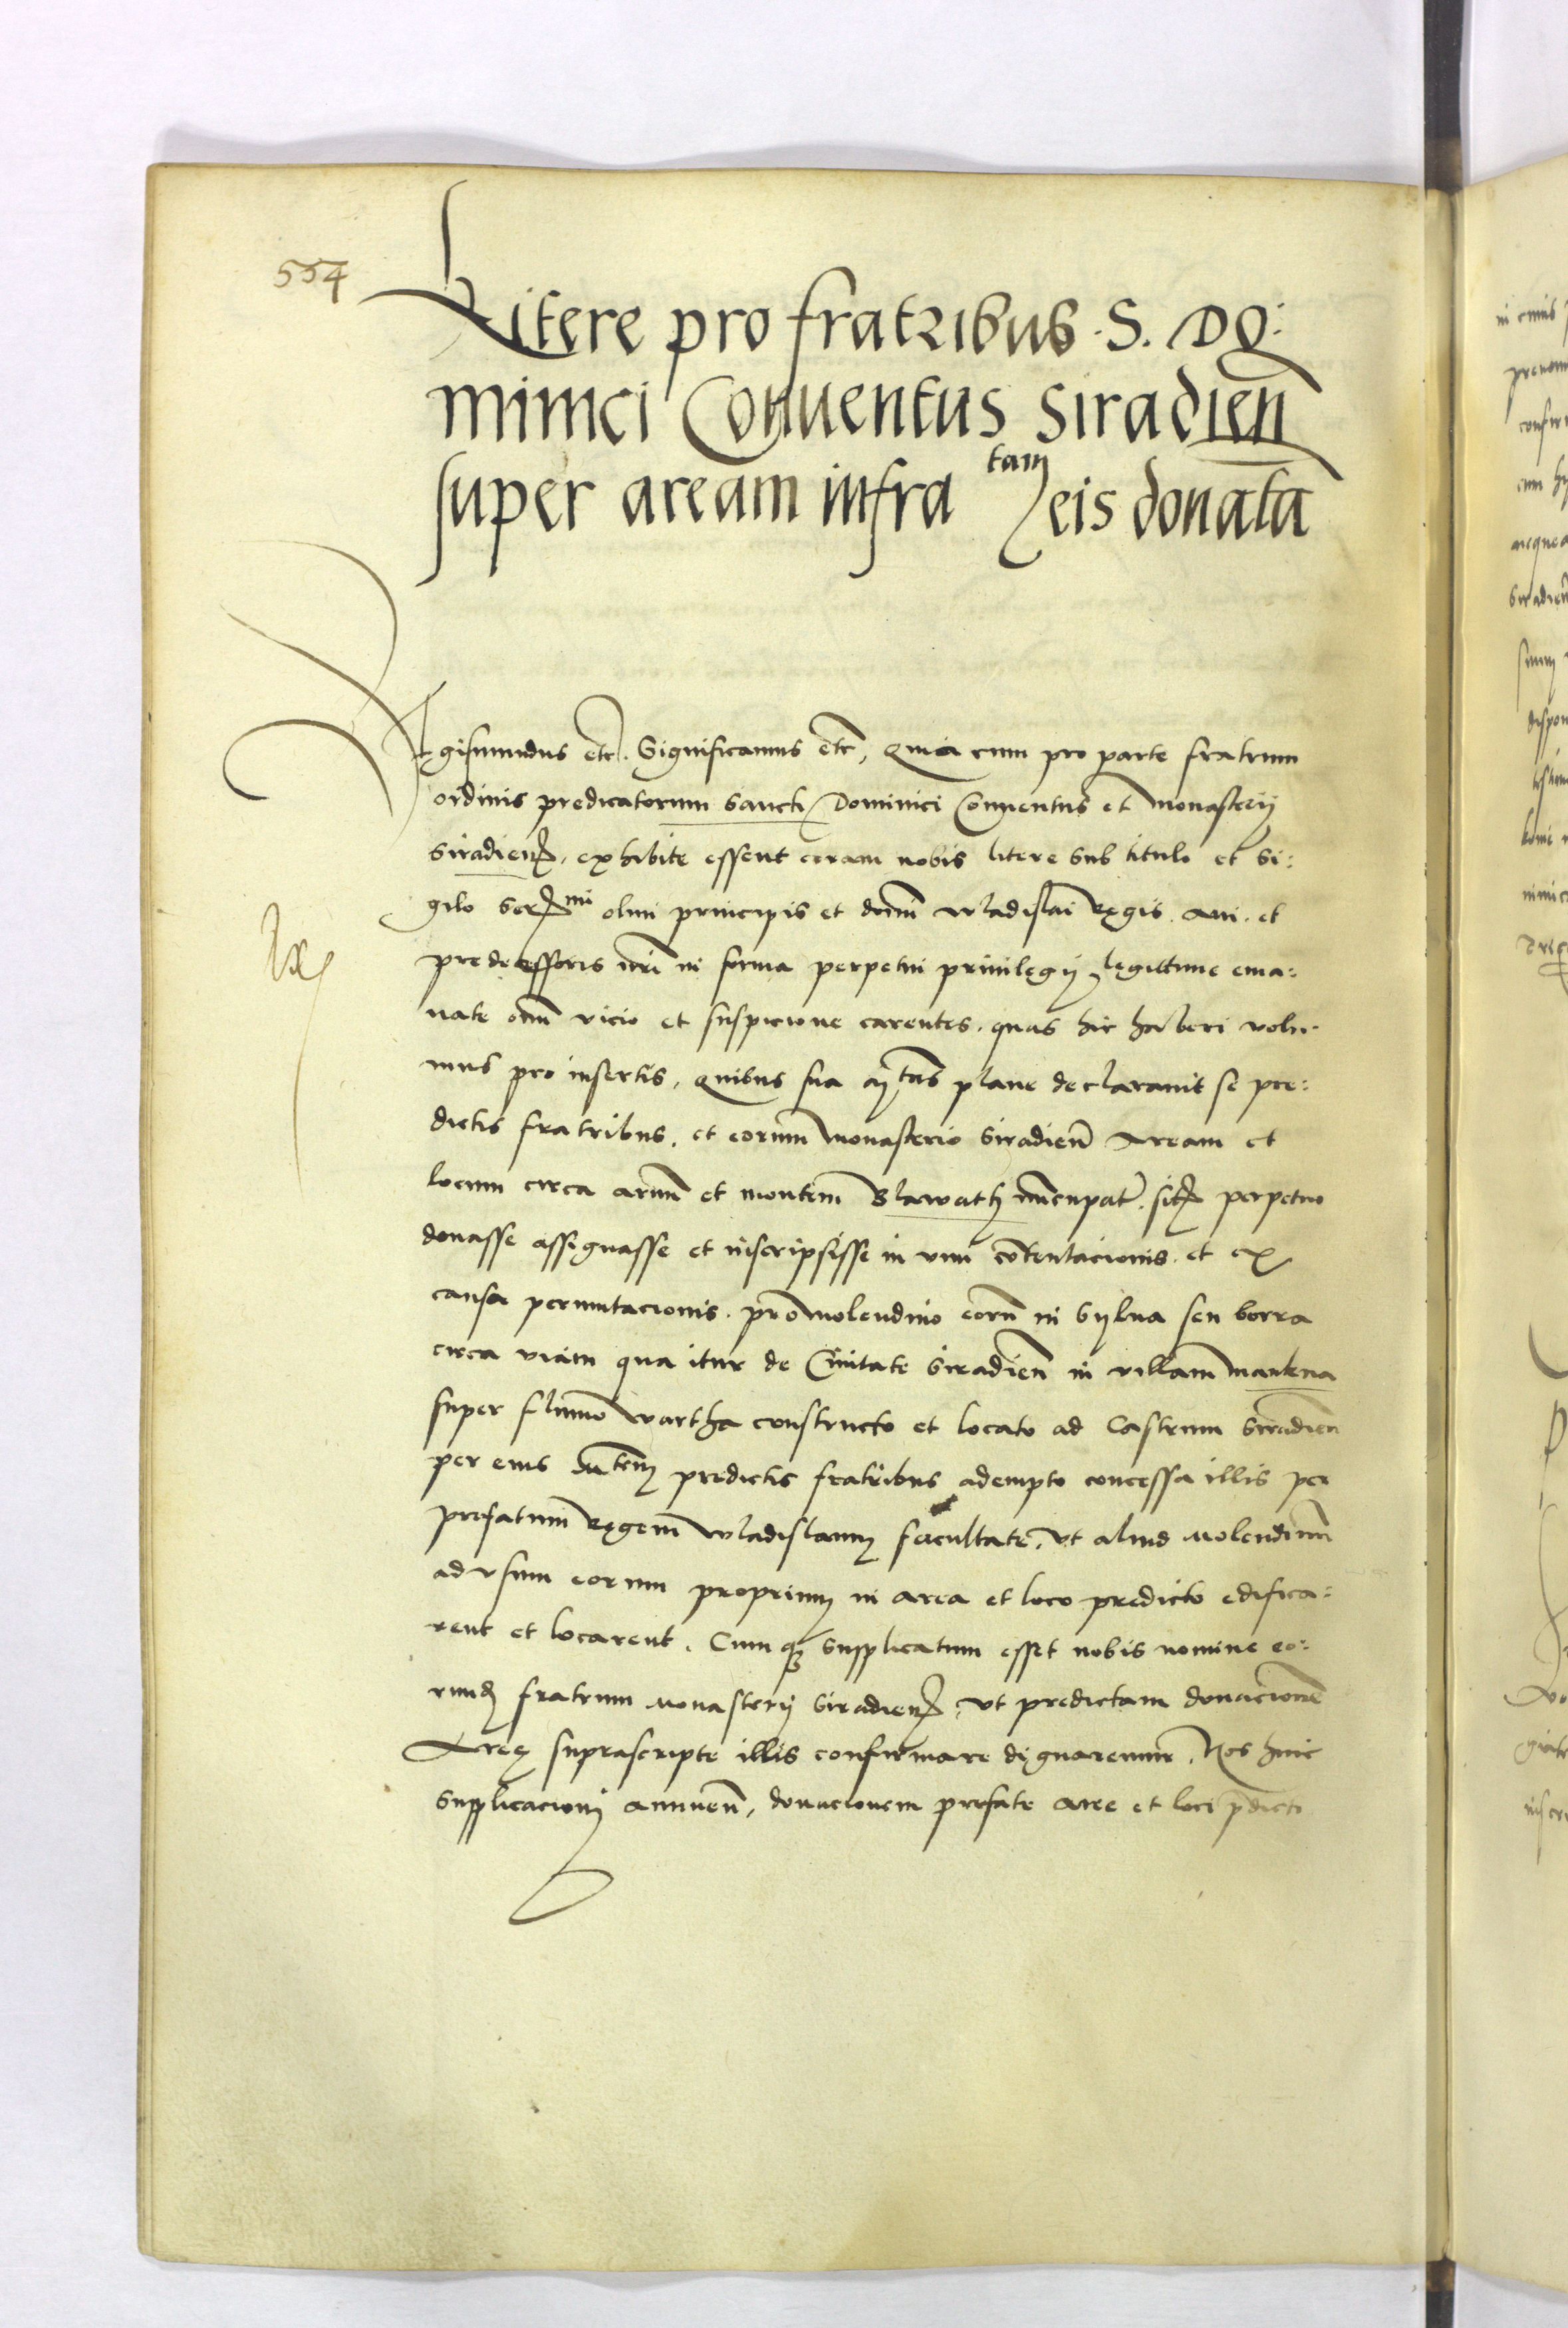 554
Litere pro fratribus S. Do:
minici Conuentus Siradien̄
super aream infra tam eis donata
Sigismundus etc. Significamus etc, Quia cum pro parte fratrum
ordinis predicatorum Sancti Dominici Conuentus et Monasterij
Siradien, exhibite essent coram nobis litere sub titulo et si:
gilo Ser mi olim principis et dnni Wladislai Regis. aui. et
predecessoris nri in forma perpetui priuilegij legittime ema:
nate omni vicio et suspicione carentes. quas hic haberi volu:
mus pro insertis, Quibus sua Mtas plane declarauit se pre:
dictis fratribus. et eorum Monasterio Siradien̄ Aream et
locum circa et montem Slawath nuncupat. sit perpetuo
donasse assignasse et inscripsisse in vim cōtentacionis. et ex
causa permutacionis. pro Molendino eorum in Sylua seu borra
circa viam qua itur de Ciuitate Siradien̄ in villam Mantena
super fluuio Wartha constructo et locato ad Castrum Siradien̄
per eius Mtem predictis fratribus adempto concessa illis per
prefatum Regem Wladislaum facultate. vt aliud Molendinum
ad vsum eorum proprium in area et loco predicto edifica:
rent et locarent. Cumque supplicatum esset nobis nomine eo:
rund fratrum Monasterij Siradien, vt predictam donacionē
Aree suprascripte illis confirmare dignaremur. Nos huic
supplicacioni annuen̄, donacionem prefate aree et loci p̄dicti